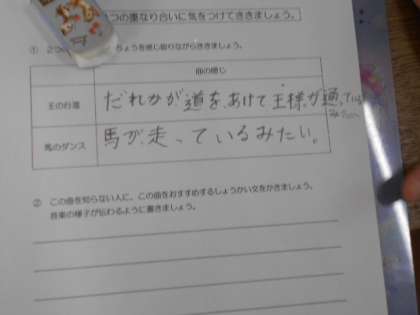 つの重なり合いに気をつけてききましょう。
① 2つ ちょうを感じ取りながらききましょう。
曲の感じ
王の行進
だれかが道を、あけて王様が通っている
みたい
馬のダンス
馬が、走っているみたい。
② この曲を知らない人に、この曲をおすすめするしょうかい文をかきましょう。
音楽の様子が伝わるように書きましょう。